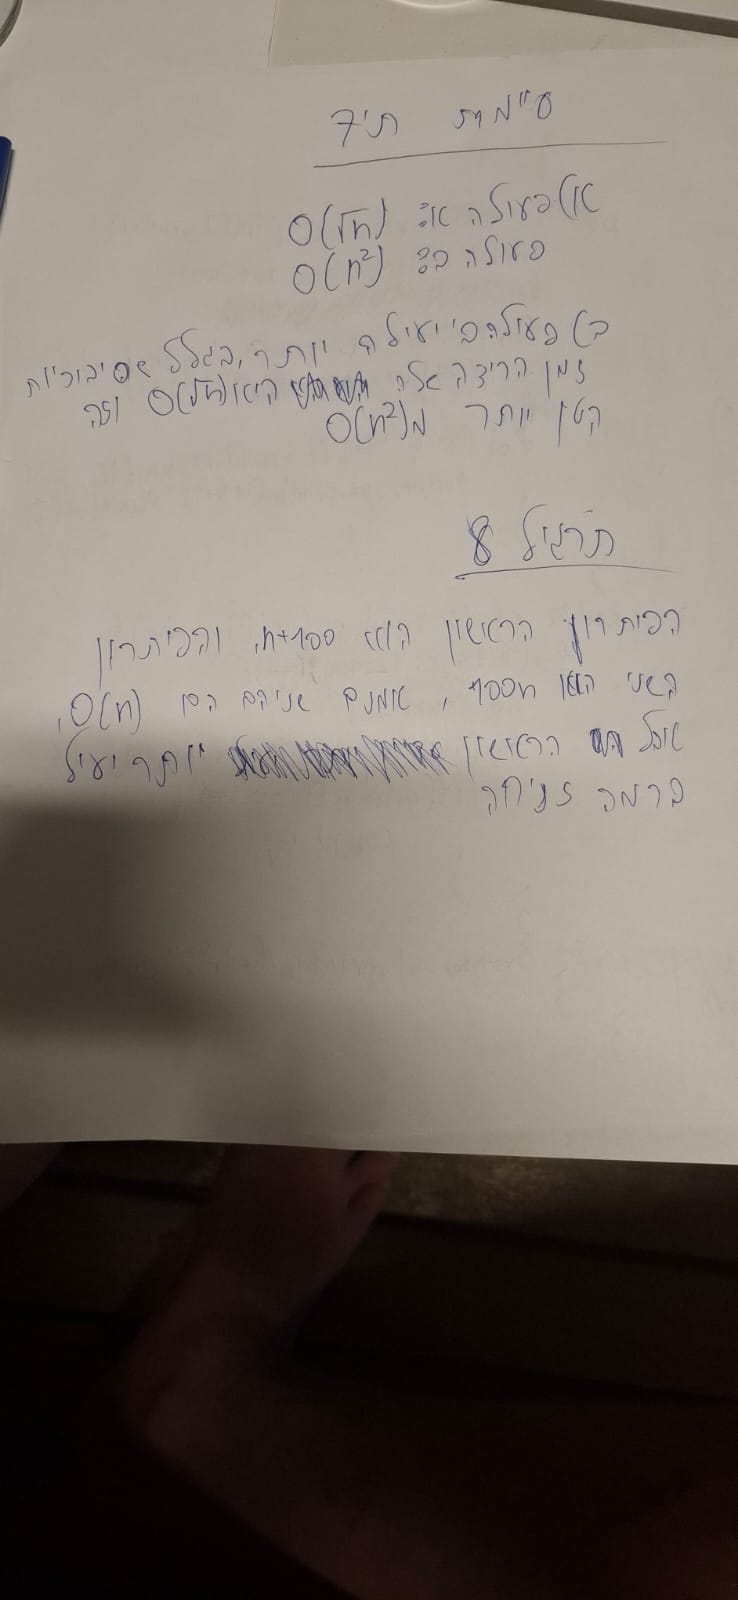 סיימת ת'ד 7
א) פעולה א: O(√n)
פעולה ב: O(n²)
ב) פעולה יעילה יותר, בגלל שסיבוכיות
זמן הריצה שלה היא O(√n) וזה
קטן יותר מ O(n²)
תרגיל 8
הפיתרון הראשון הוא n+100, והפיתרון
השני הוא 100n, אומנם שניהם הם O(n),
אבל הראשון יותר יעיל
ברמה זניחה